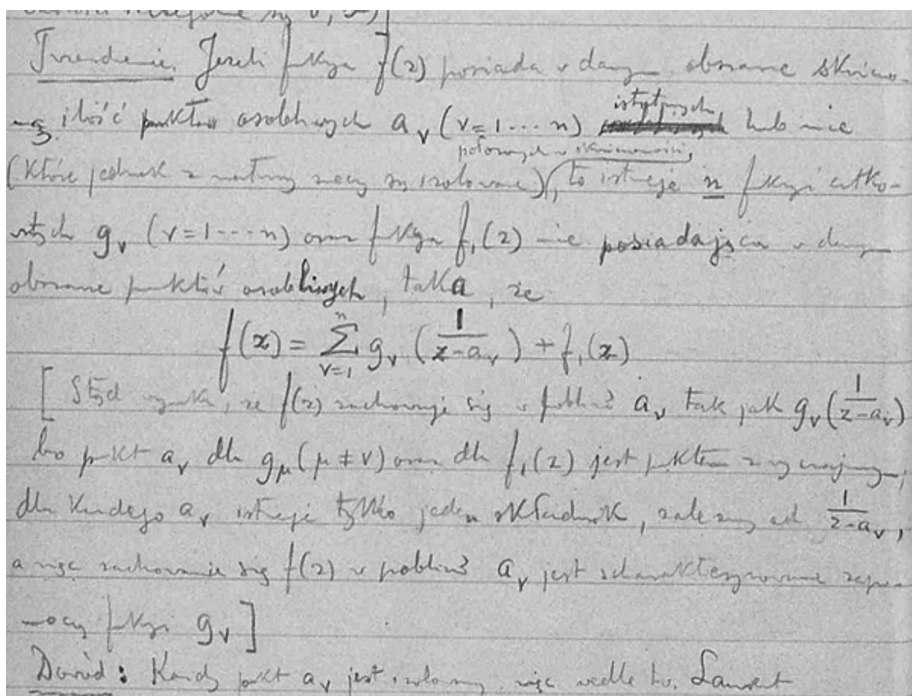 Twierdzenie. Jeżeli fkcja f(z) posiada w danym obszarze skończo-
ną ilość punktów osobliwych a_ν (ν=1···n) istotnych lub nie
położonych w skończoności,
(które jednak z natury rzeczy są izolowane), to istnieje n fkcyj całko-
witych g_ν (ν=1···n) oraz fkcja f₁(z) nie posiadająca w danym
obszarze punktów osobliwych, taka, że
f(z) = Σ_{ν=1}^{n} g_ν (1/(z-a_ν)) + f₁(z)
[Stąd wynika, że f(z) zachowuje się w pobliżu a_ν tak jak g_ν(1/(z-a_ν))
bo pkt a_ν dla g_μ (μ≠ν) oraz dla f₁(z) jest pktem zwyczajnym;
dla każdego a_ν istnieje tylko jeden składnik, zależny od 1/(z-a_ν),
a więc zachowanie się f(z) w pobliżu a_ν jest scharakteryzowane zapo-
mocą fkcji g_ν]
Dowód: Każdy pkt a_ν jest izolowany, więc wedle tw. Laurent